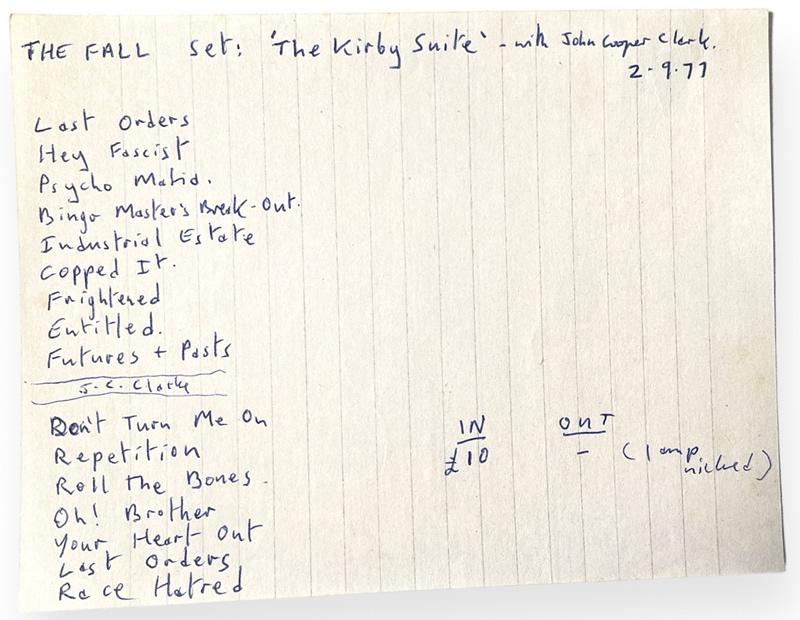 THE FALL set: 'The Kirby Suite' - with John Cooper Clark.
2-9-77
Last Orders
Hey Fascist
Psycho Mafia.
Bingo Master's Break-Out.
Industrial Estate
Copped It.
Frightened
Entitled.
Futures + Pasts
J.C. Clarke
Don't Turn Me On
Repetition
Roll the Bones.
Oh! Brother
Your Heart Out
Last Orders
Race Hatred
IN OUT
£10 - (1 amp
nicked)